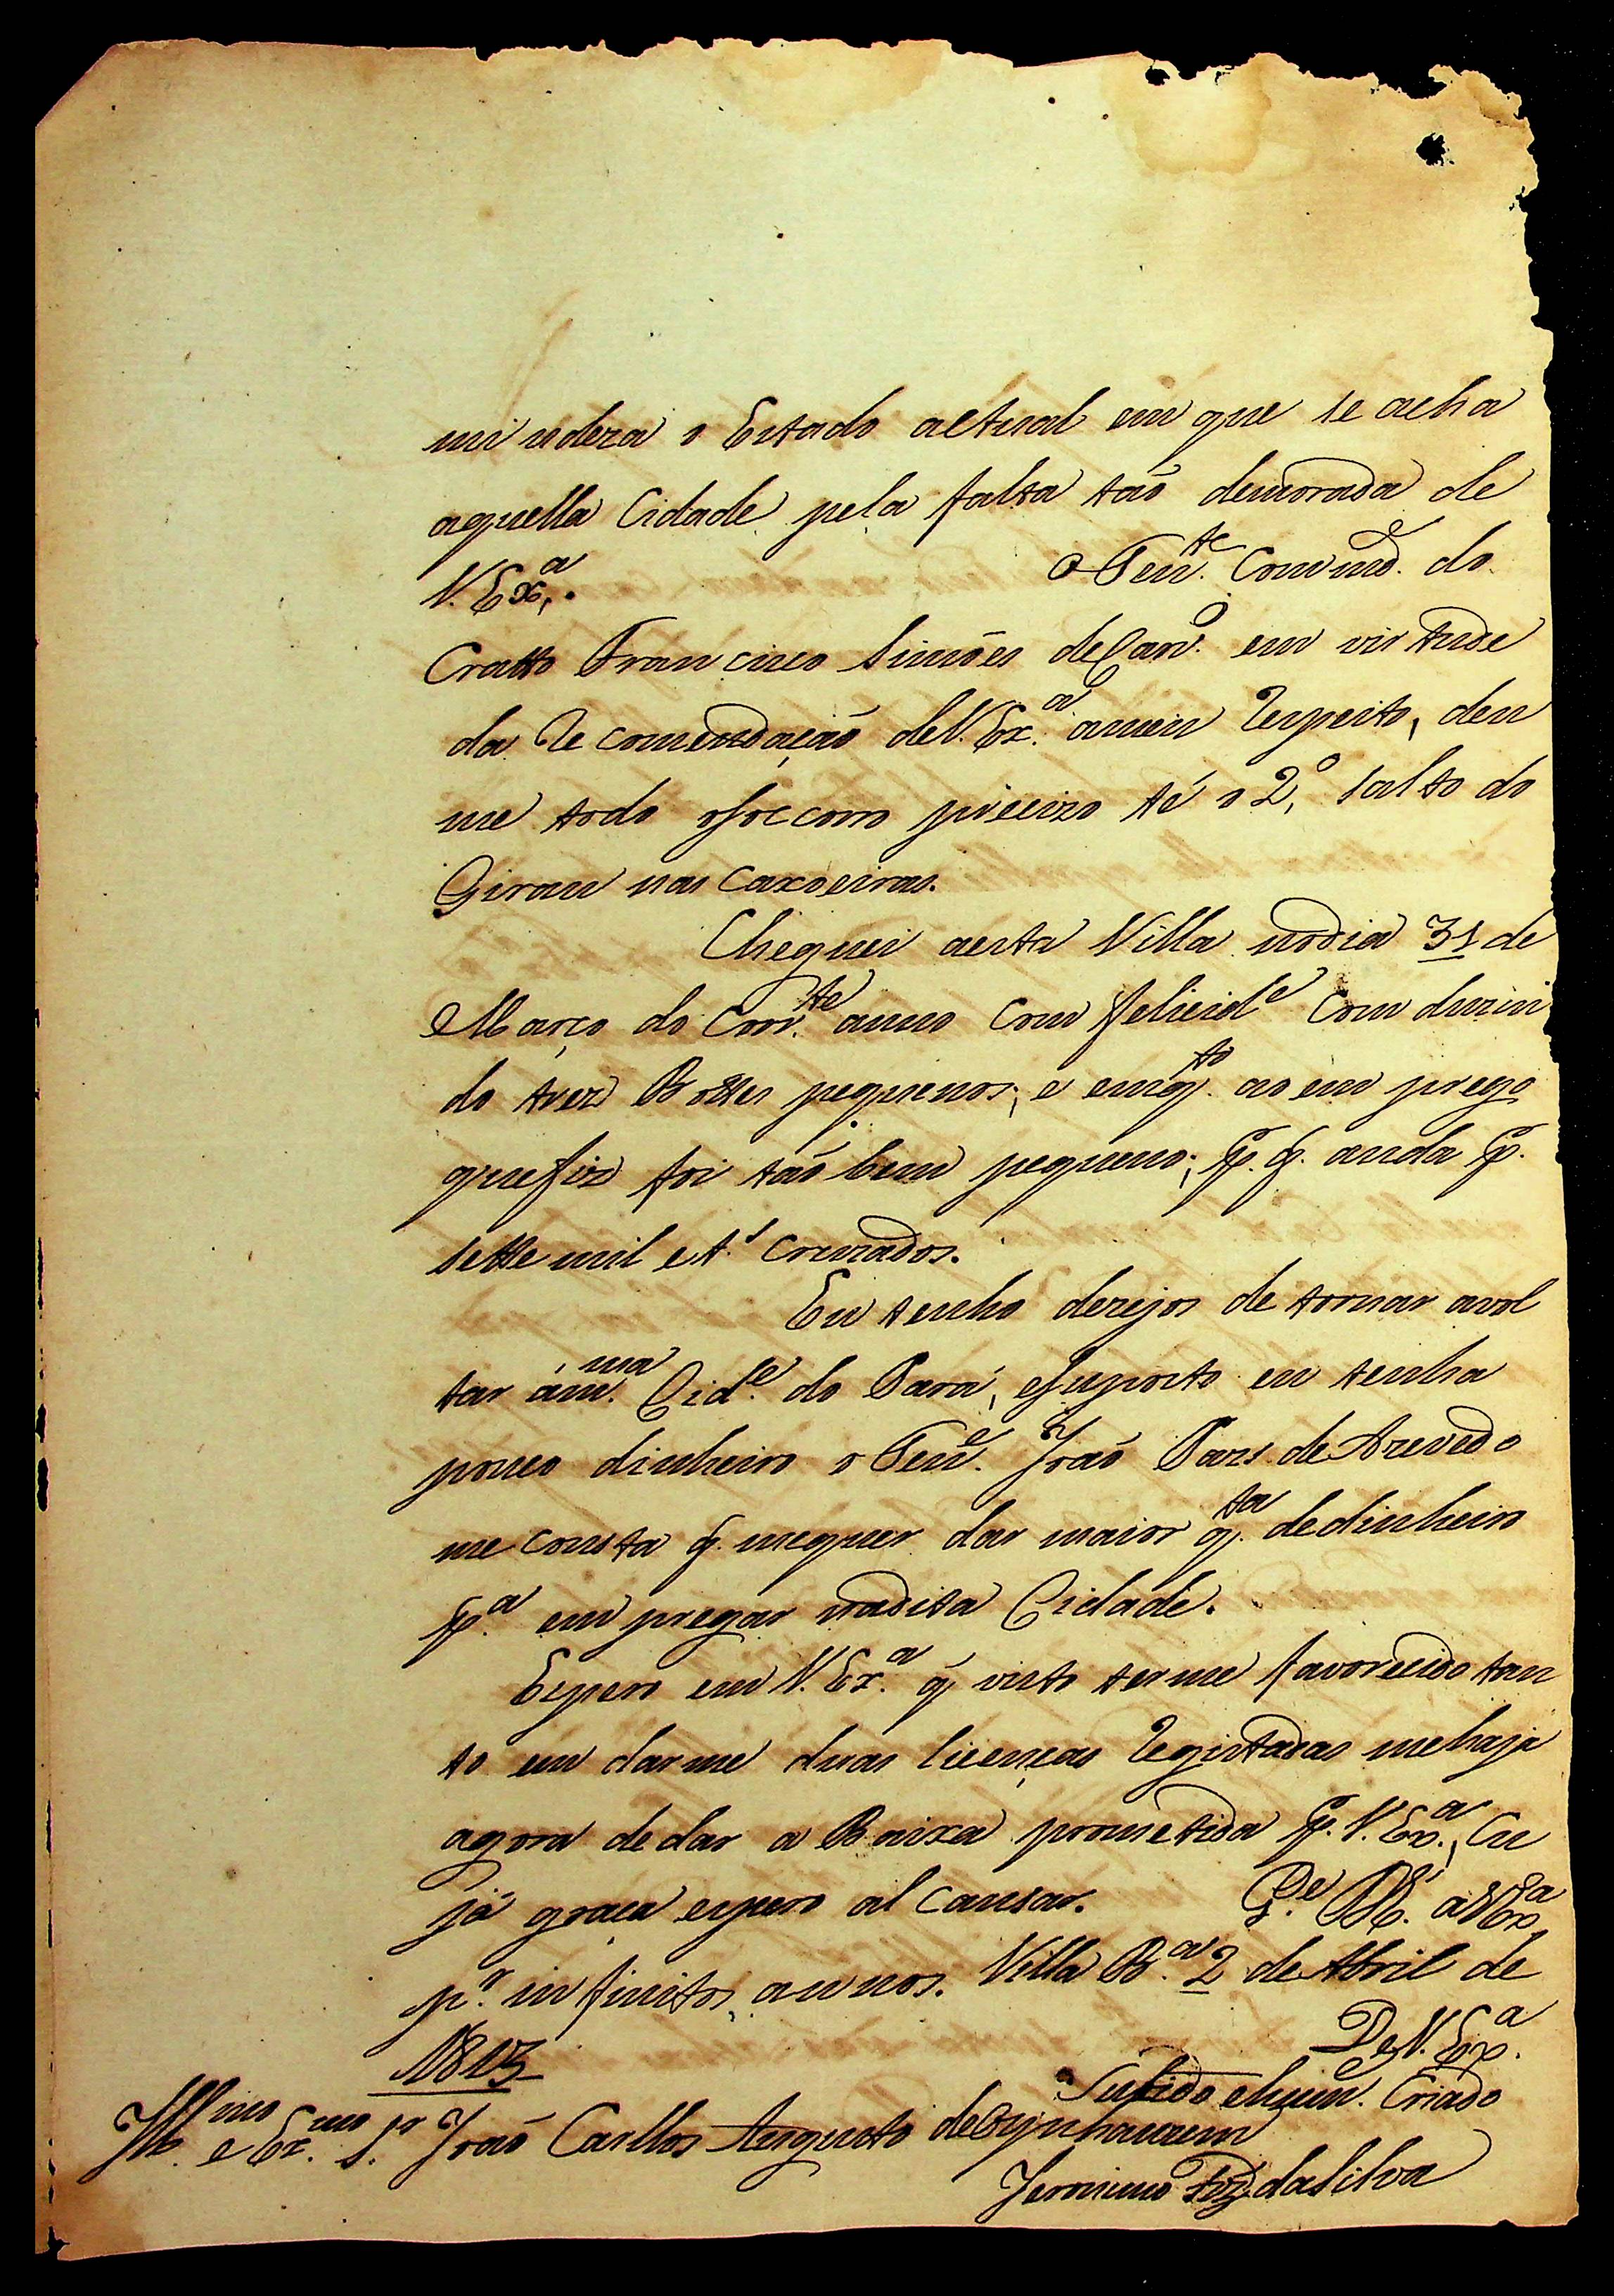 miudeza o Estado actual em que se acha
aquella Cidade pela falta taõ demorada de
V. Exª. O Tenᵗᵉ. Comᵈᵉ. do
Cratto Francisco Simões de Carvº. em virtude
da recomendaçaõ de V. Exª. ameu respeito, deu
me todo osoccorro precizo té o 2º. salto do
Girau nas Caxoeiras.
Cheguei aesta Villa nodia 31 de
Março do Corrᵗᵉ. anno com felicidᵉ Comduzin
do trez Bottes pequenos; e emqᵗᵒ. ao em prego
quefiz foi taõ bem pequeno; p. q. anda p.
sette mil et.ˢ cruzados.
Eu tenho dezejos de tornar avol
tar ámᵐᵃ. Cidᵉ. do Pará, esuposto eu tenha
pouco dinheiro o Tenᵉ. Joaõ Paes de Azevedo
me consta q. mequer dar maior qᵗᵃ. dedinheiro
pª. em pregar nadita Cidade.
Espero em V. Exª. q̃ visto terme favorecido tan
to em darme duas licenças Registadas mehaja
agora dedar a Baixa prometida p. V. Exª., Cu
já graça espero al cansar. Gᵉ. Dˢ. a V Exª
pʳ. in finitos annos. Villa Bª. 2 de Abril de
1813
De V. Exª.
Subido ehum. Criado
Illᵐᵒ. e Exᵐᵒ. Sʳ. Joaõ Carllos Augusto deOynhausem
Jeronimo Frz̃ daSilva